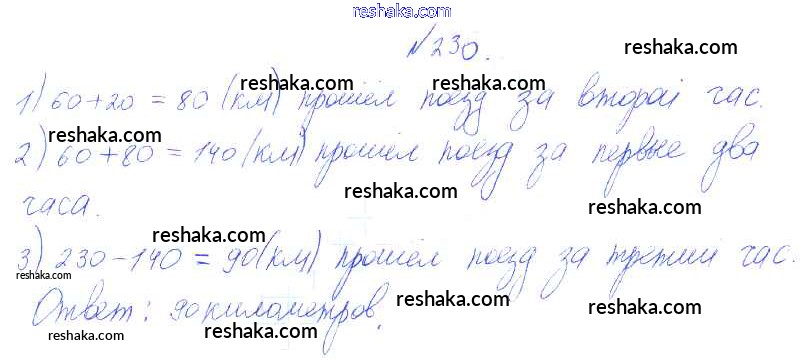 reshaka.com
№230.
reshaka.com
reshaka.com reshaka.com reshaka.com
1) 60+20 = 80 (км) прошёл поезд за второй час.
reshaka.com
2) 60+80 = 140 (км) прошёл поезд за первые два
reshaka.com reshaka.com
часа.
reshaka.com reshaka.com
3) 230-140 = 90 (км) прошёл поезд за третий час.
reshaka.com reshaka.com
Ответ: 90 километров.
reshaka.com reshaka.com reshaka.com
reshaka.com